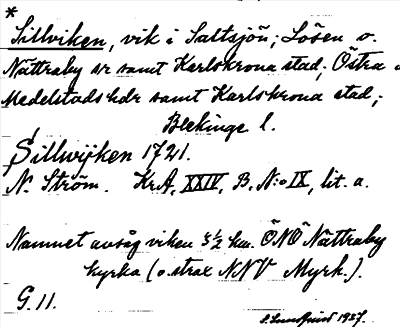 *
Sillviken, vik i Saltsjön; Lösen o.
Nättraby sr samt Karlskrona stad; Östra o
Medelstads hdr samt Karlskrona stad;
Blekinge l.
Sillwijken 1721.
N. Ström. KrA, XXIV, B. N:o IX, lit. a.
Namnet avsåg viken 3½ km. ÖNÖ Nättraby
kyrka (o. strax NNV Myrh.).
G. 11.
1927.